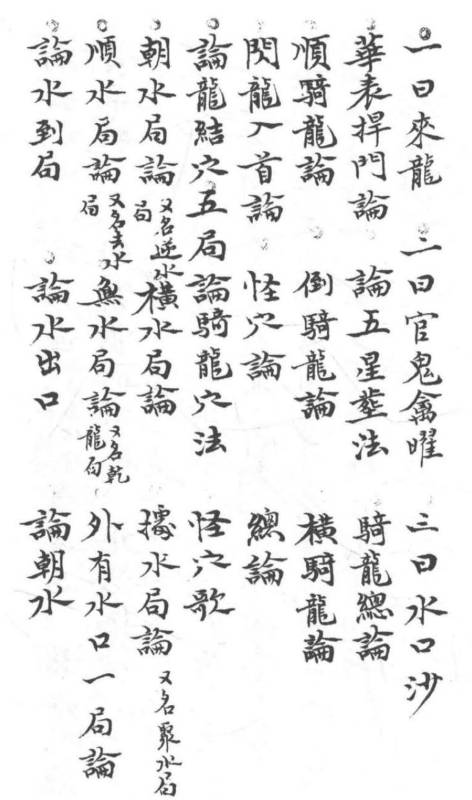 一曰來龍 二曰官鬼禽曜 三曰水口沙
華表捍門論 論五星塟法 騎龍總論
順騎龍論 倒騎龍論 橫騎龍論
閃龍入首論 怪穴論 總論
論龍結穴五局論騎龍穴法 怪穴歌
朝水局論又名逆水局 橫水局論 據水局論又名聚水局
順水局論又名去水局 無水局論又名乾龍局 外有水口一局論
論水到局 論水出口 論朝水